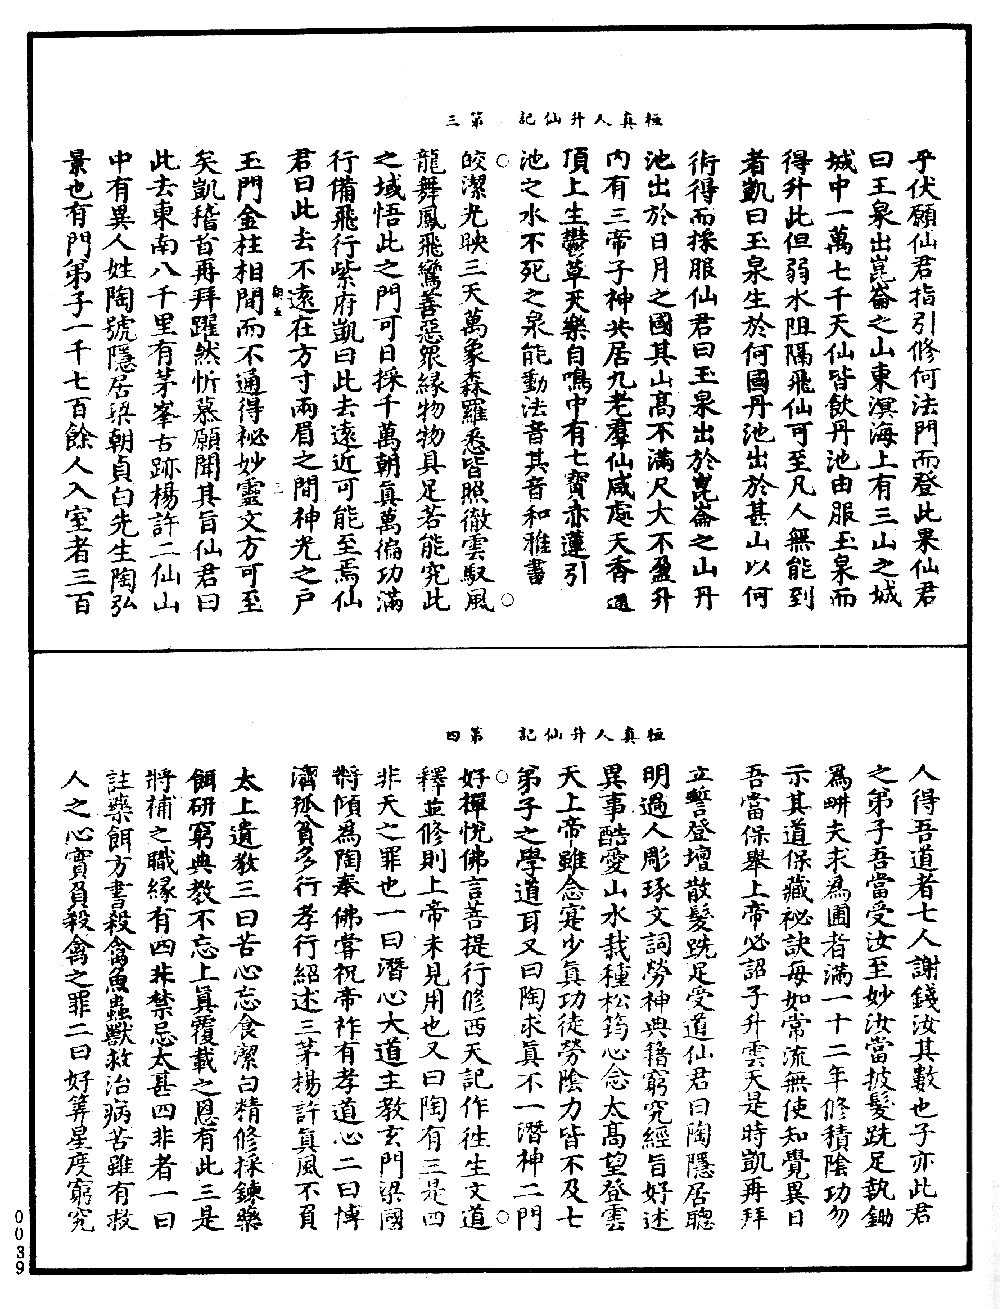 桓真人升仙記　第三
乎伏願仙君指引修何法門而登此果仙君
曰玉泉出崑崙之山東溟海上有三山之城
城中一萬七千天仙皆飲丹池由服玉泉而
得升此但弱水阻隔飛仙可至凡人無能到
者凱曰玉泉生於何國丹池出於甚山以何
術得而採服仙君曰玉泉出於崑崙之山丹
池出於日月之國其山高不滿尺大不盈升
內有三帝子神共居九老羣仙咸處天香遍
頂上生鬱草天樂自鳴中有七寶赤蓮引
池之水不死之泉能動法音其音和雅晝
○皎潔光映三天萬象森羅悉皆照徹雲馭風○
龍舞鳳飛鸞善惡眾緣物物具足若能究此
之域悟此之門可日採千萬朝真萬徧功滿
行備飛行紫府凱曰此去遠近可能至焉仙
君曰此去不遠在方寸兩眉之間神光之戶
玉門金柱相間而不通得祕妙靈文方可至
矣凱稽首再拜躍然忻慕願聞其旨仙君曰
此去東南八千里有茅峯古跡楊許二仙山
中有異人姓陶號隱居梁朝貞白先生陶弘
景也有門弟子一千七百餘人入室者三百
桓真人升仙記　第四
人得吾道者七人謝錢汝其數也子亦此君
之弟子吾當受汝至妙汝當披髮跣足執鋤
為畊夫求為圃者滿一十二年修積陰功勿
示其道保藏祕訣每如常流無使知覺異日
吾當保舉上帝必詔子升雲天是時凱再拜
立誓登壇散髮跣足受道仙君曰陶隱居聰
明過人彫琢文詞勞神典籍窮究經旨好述
異事酷愛山水栽種松筠心念太高望登雲
天上帝雖念寔少真功徒勞陰力皆不及七
弟子之學道耳又曰陶求真不一潛神二門
○好禪悅佛言菩提行修西天記作往生文道○
釋並修則上帝未見用也又曰陶有三是四
非天之罪也一曰潛心大道主教玄門梁國
將傾為陶奉佛嘗祝帝祚有孝道心二曰博
濟孤貧多行孝行紹述三茅楊許真風不負
太上遺教三曰苦心忘食潔白精修採鍊藥
餌研窮典教不忘上真覆載之恩有此三是
將補之職緣有四非禁忌太甚四非者一曰
註藥餌方書殺禽魚蟲獸救治病苦雖有救
人之心實負殺禽之罪二曰好筭星度窮究
0039